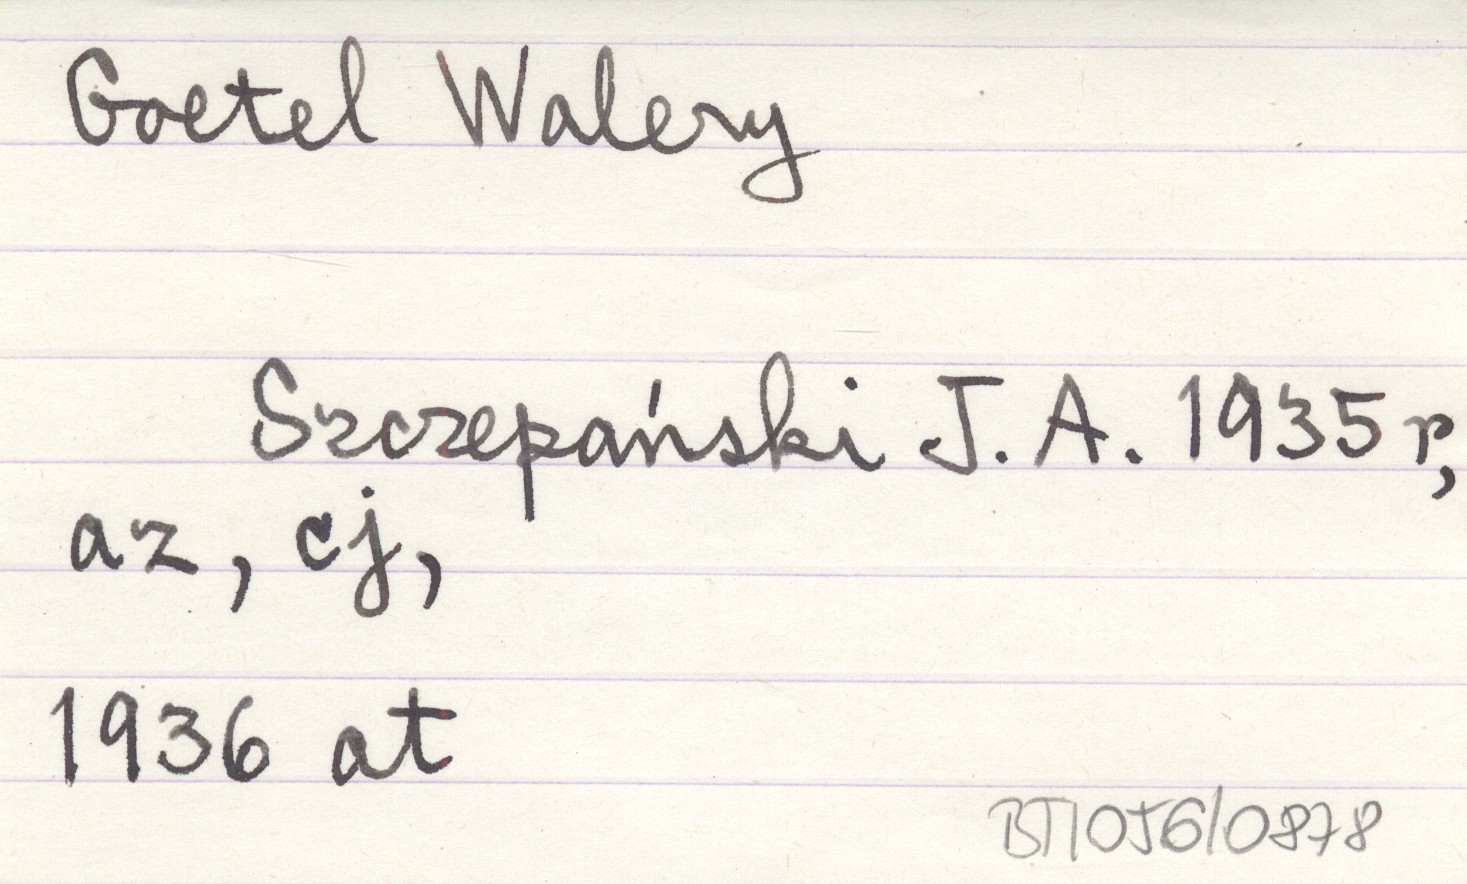 Goetel Walery
Szczepański J. A. 1935 r,
az, cj,
1936 at
BT/056/0878